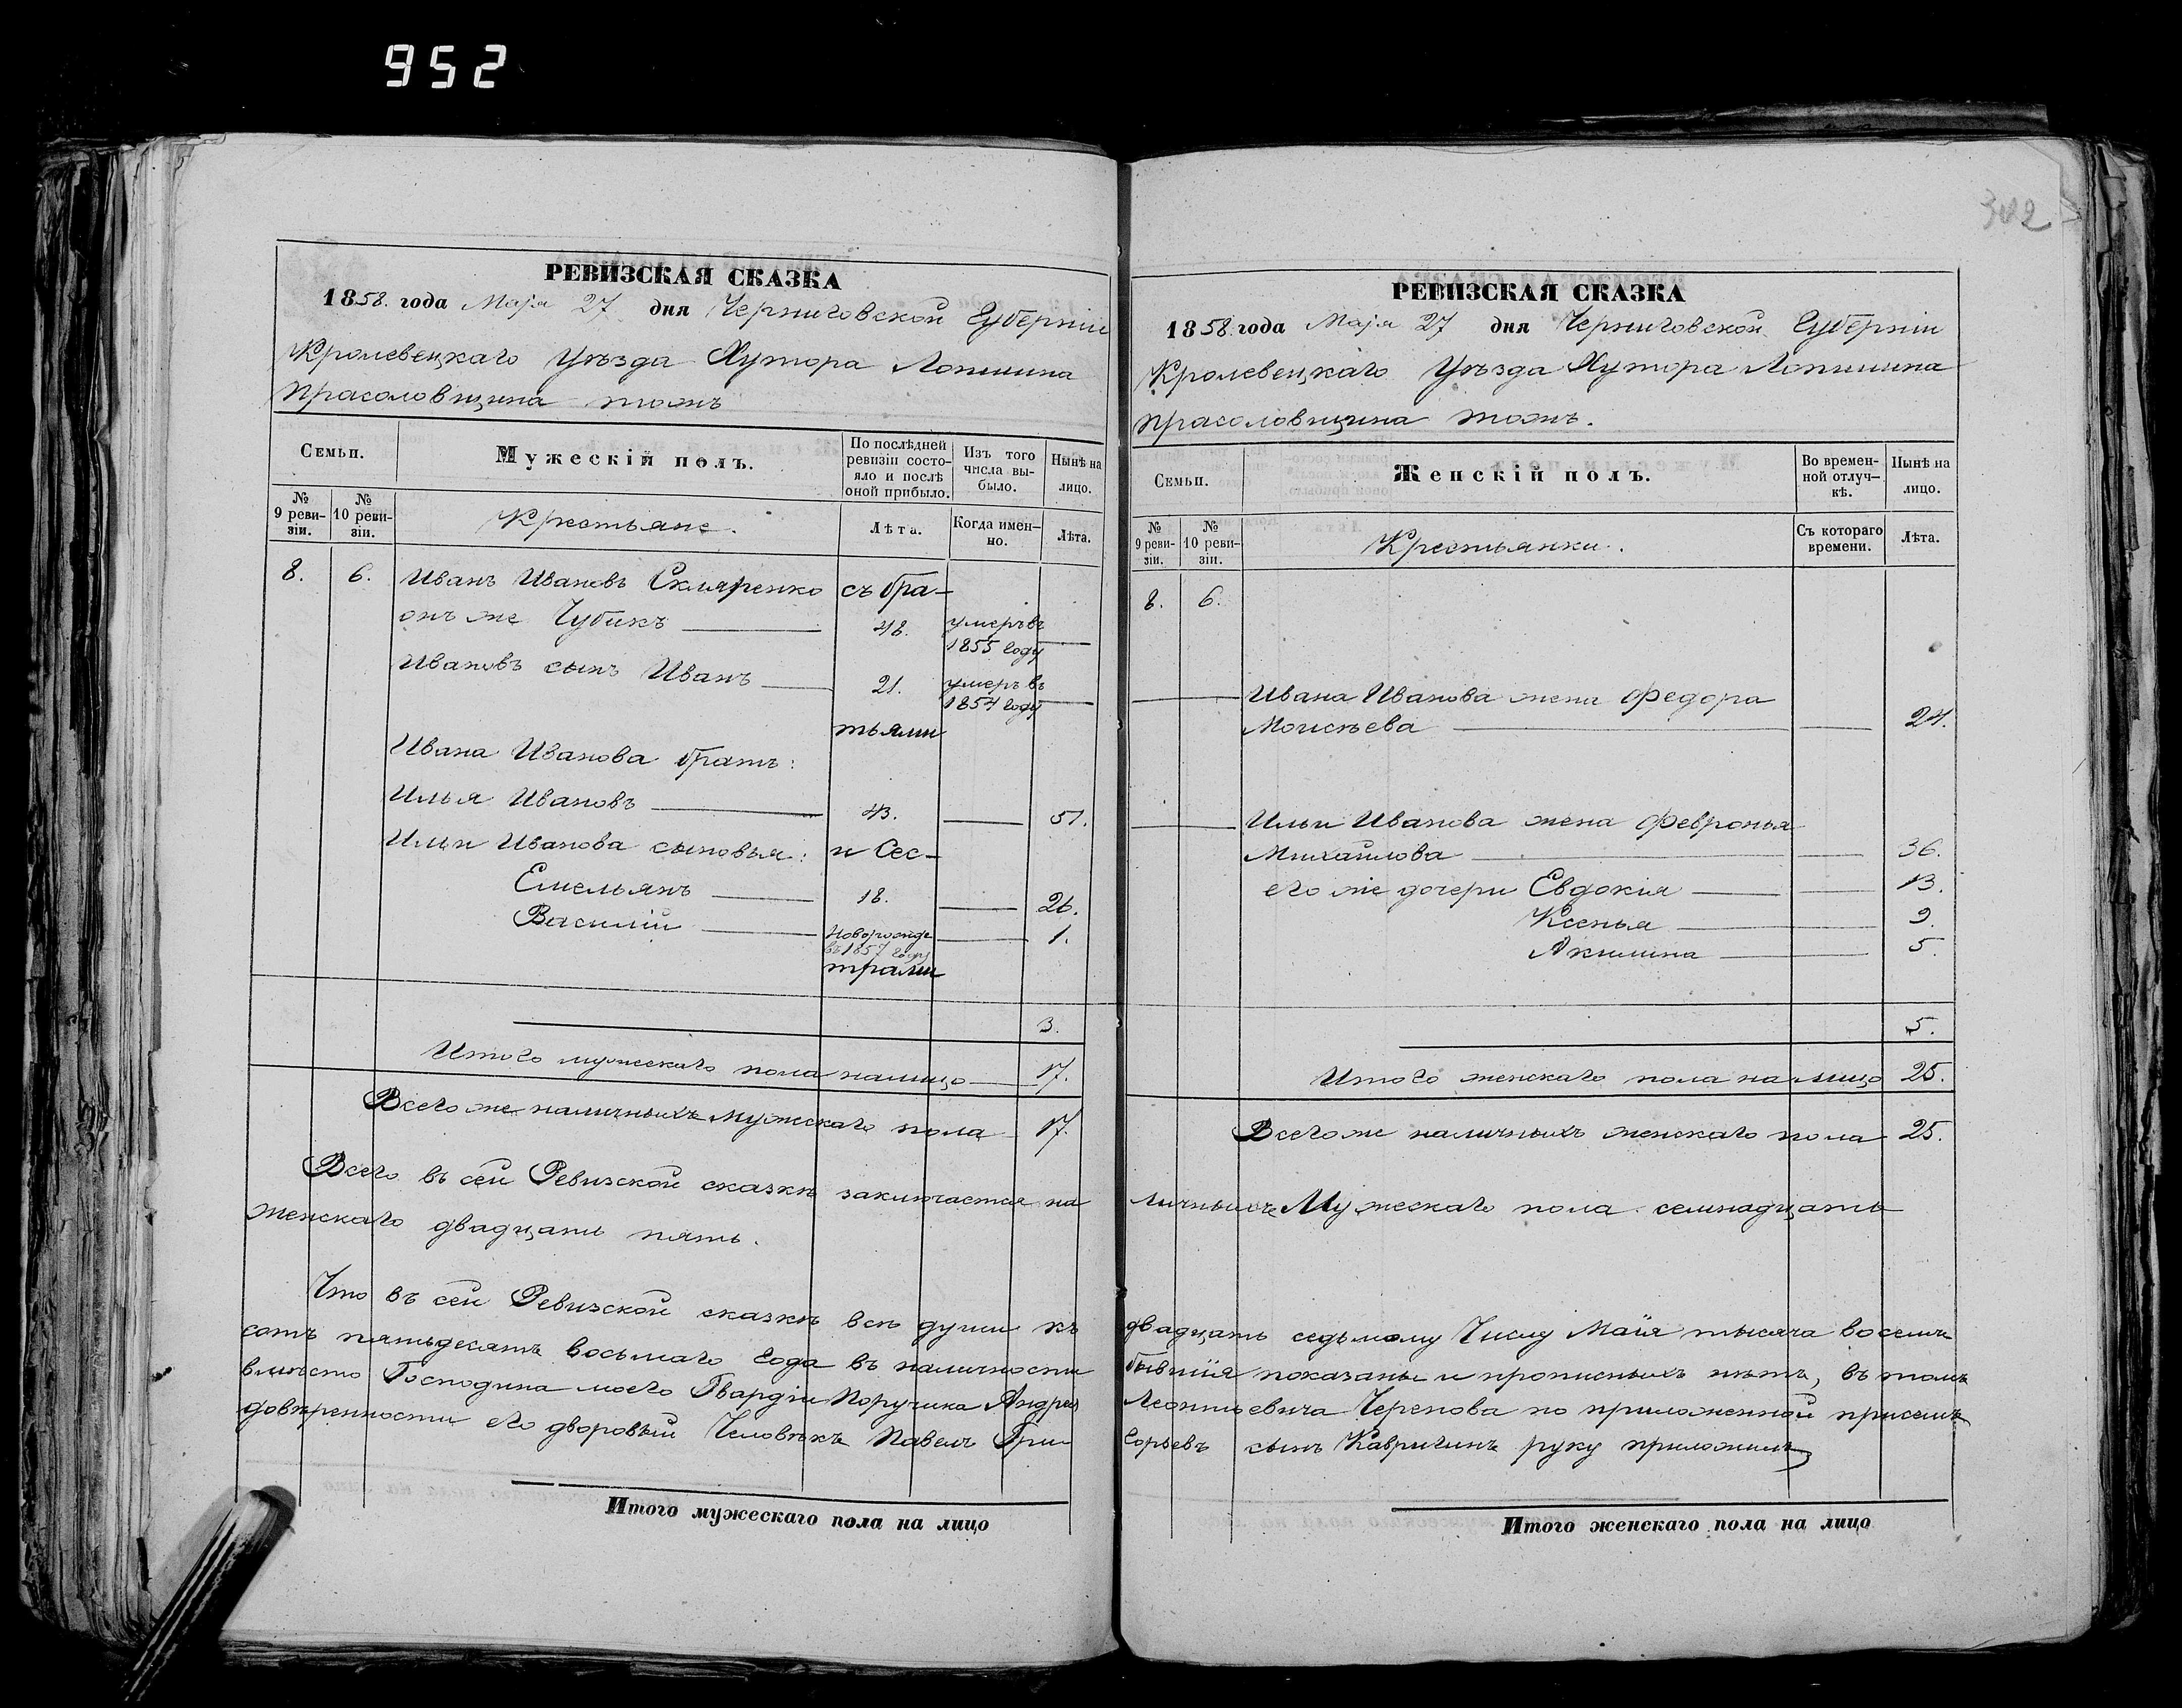 952
302
РЕВИЗСКАЯ СКАЗКА
1858. года Маія 27 дня Черниговской Губерніи
Кролевецкаго Уѣзда Хутора Лопшина
Прасоловщина тожъ
Семьи.
Мужескій полъ.
По послѣдней ревизіи состояло и послѣ оной прибыло.
Изъ того числа выбыло.
Нынѣ на лицо.
№ 9 ревизіи.
№ 10 ревизіи.
Крестьяне.
Лѣта.
Когда именно.
Лѣта.
8. 6. Иванъ Ивановъ Скляренко съ бра-
онъ же Чубикъ 48. умеръ въ
1855 году
Ивановъ сынъ Иванъ 21. умеръ въ
1854 году
тьями
Ивана Иванова братъ:
Илья Ивановъ 43. 51.
Ильи Иванова сыновья: и Сес-
Емельянъ 18. 26.
Василій Новорожде 1.
въ 1857 году
трами
3.
Итого мужескаго пола налицо 17.
Всего же наличныхъ мужескаго пола 17.
Всего въ сей Ревизской сказкѣ заключается на
женскаго двадцать пять.
Что въ сей Ревизской сказкѣ всѣ души къ
сотъ пятьдесятъ восьмаго года въ наличности
вмѣсто Господина моего Гвардіи Поручика Андрея
довѣренности его дворовый Человѣкъ Павелъ Гри
Итого мужескаго пола на лицо
РЕВИЗСКАЯ СКАЗКА
1858. года Маія 27 дня Черниговской Губерніи
Кролевецкаго Уѣзда Хутора Лопшина
Прасоловщина тожъ.
Семьи.
Женскій полъ.
Во временной отлучкѣ.
Нынѣ на лицо.
№ 9 ревизіи.
№ 10 ревизіи.
Крестьянки.
Съ котораго времени.
Лѣта.
8. 6.
Ивана Иванова жена Федора
Моисѣева 24.
Ильи Иванова жена Февронья
Михайлова 36.
его же дочери Евдокія 13.
Ксенья 9.
Акилина 5.
5.
Итого женскаго пола на лицо 25.
Всего же наличныхъ женскаго пола 25.
личныхъ Мужескаго пола семнадцать
двадцать седьмому Числу Маія тысяча восемь
бывшія показаны и прописныхъ нѣтъ, въ томъ
Леонтьевича Черепова по приложенной присемъ
горьевъ сынъ Кавригинъ руку приложилъ
Итого женскаго пола на лицо